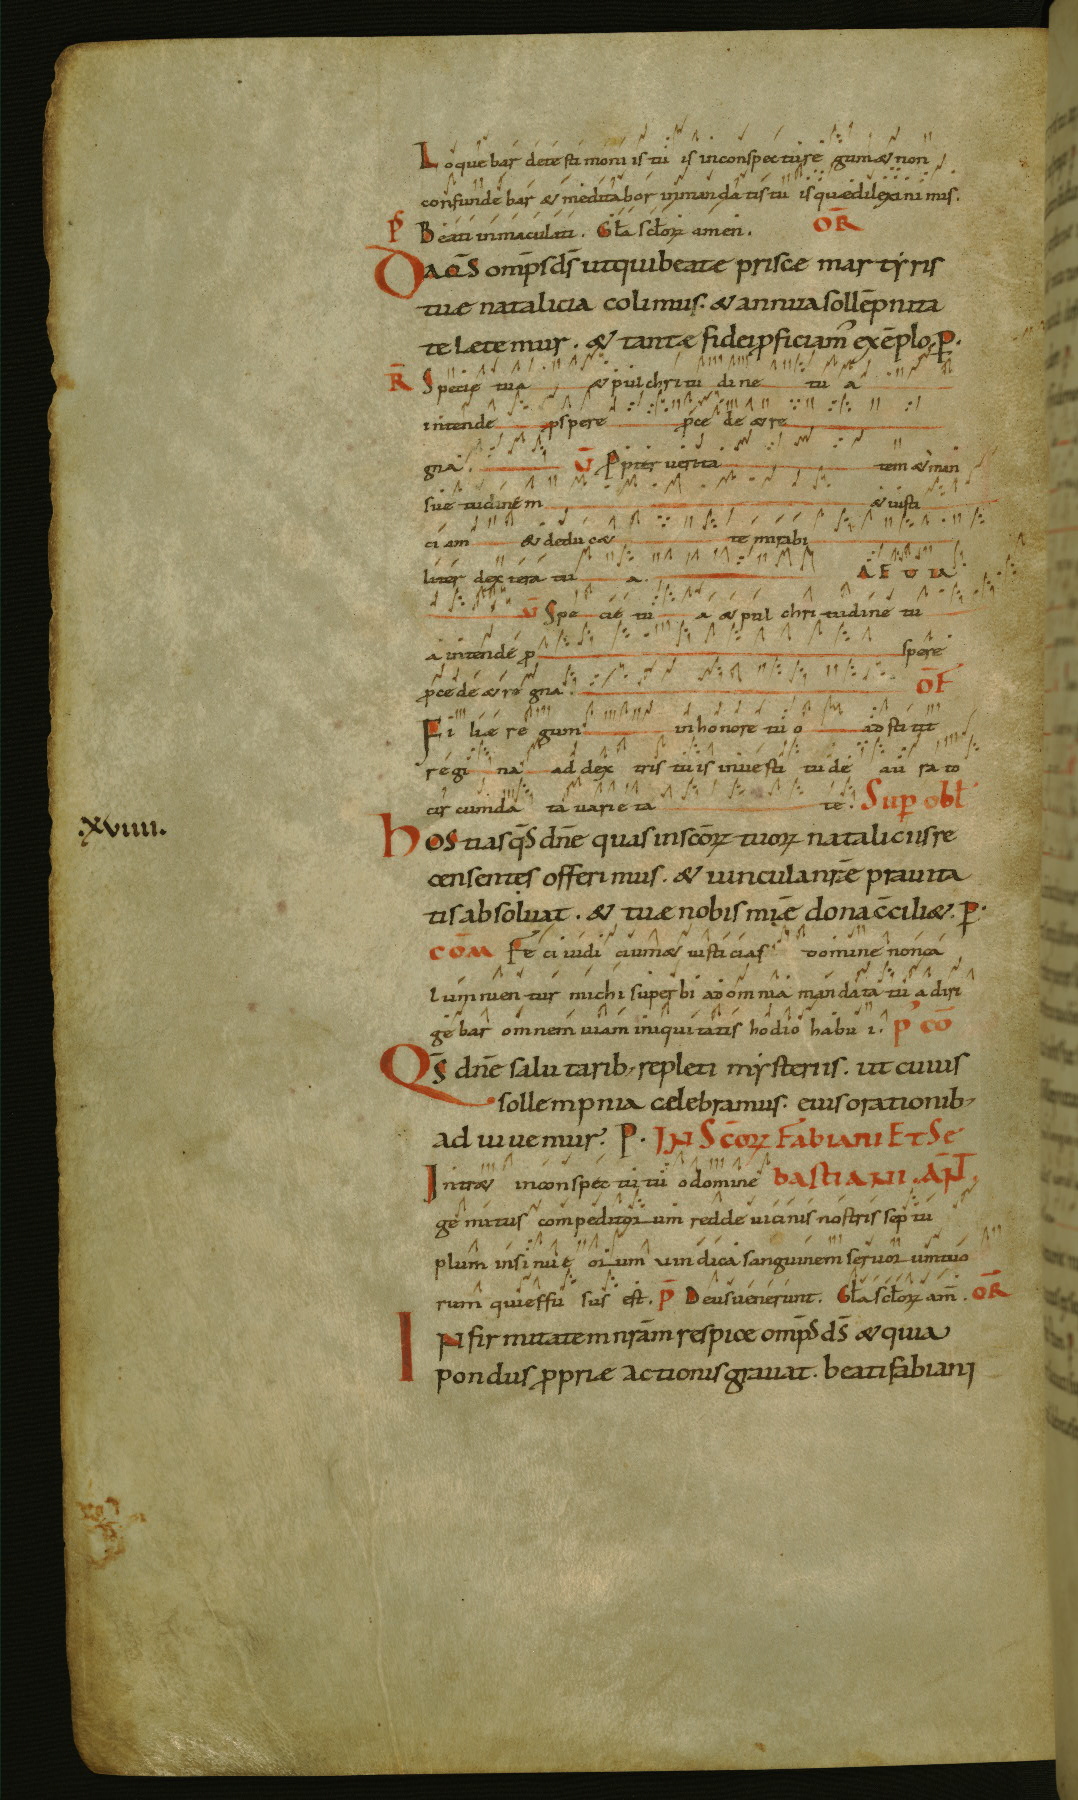 Loquebar detestimoniistuis inconspecturegum & non
confundebar & meditabor inmandatistuis quaedilexi nimis.
P̄S Beati inmaculati. Gl̄a scl̄orꝝ amen. OR̄
DA Q̄S omp̄s d̄s ut qui beatę priscę martyris
tuę natalicia colimus. & annua sollēpnita
te lętemur. & tantę fidei ꝓficiam̄ exēplo. P.
R̄ Specie tua & pulchritudine tua
intende ꝓspere ꝓcede & re
gna. V̄ Propter verita tem & man
suetudinem & iusti
ciam & deduc& te mirabi
liter dextera tua. A E U IA
V̄ Specie tua & pulchritudine tu
a intende ꝓ spere
ꝓcede & regna. OF̄
Filiae regum inhonore tuo adstitit
regina addextristuis inuestitu deaurato
circumdata uarietate. Sup obl̄
.XVIIII.
HOStias q̄s dn̄e quas in scōrꝝ tuorꝝ nataliciis re
censentes offerimus. & uincula nr̄ę prauita
tis absoluat. & tuę nobis mię̄ dona c̄cili&. P.
COM̄ Feci iudicium & iusticias domine non ca
lumnientur michi superbi ad omnia mandata tua diri
gebar omnem uiam iniquitatis hodio habui. P̄ CŌ
Q̄S dn̄e salutarib; repleti mysteriis. ut cuius
sollempnia celebramus. eius orationib;
adiuuemur. P. IN SC̄ORꝝ FABIANI ET SE
Intr& inconspectu tuo domine BASTIANI. AN̄T.
gemitus compeditorum redde uicinis nostris septu
plum insinu eorum uindica sanguinem seruorum tuo
rum qui effusus est. P̄S Deus uenerunt. Gl̄a scl̄orꝝ am̄. OR̄
INfirmitatem nr̄am respice omp̄s d̄s & quia
pondus ꝓprię actionis grauat. beati fabiani